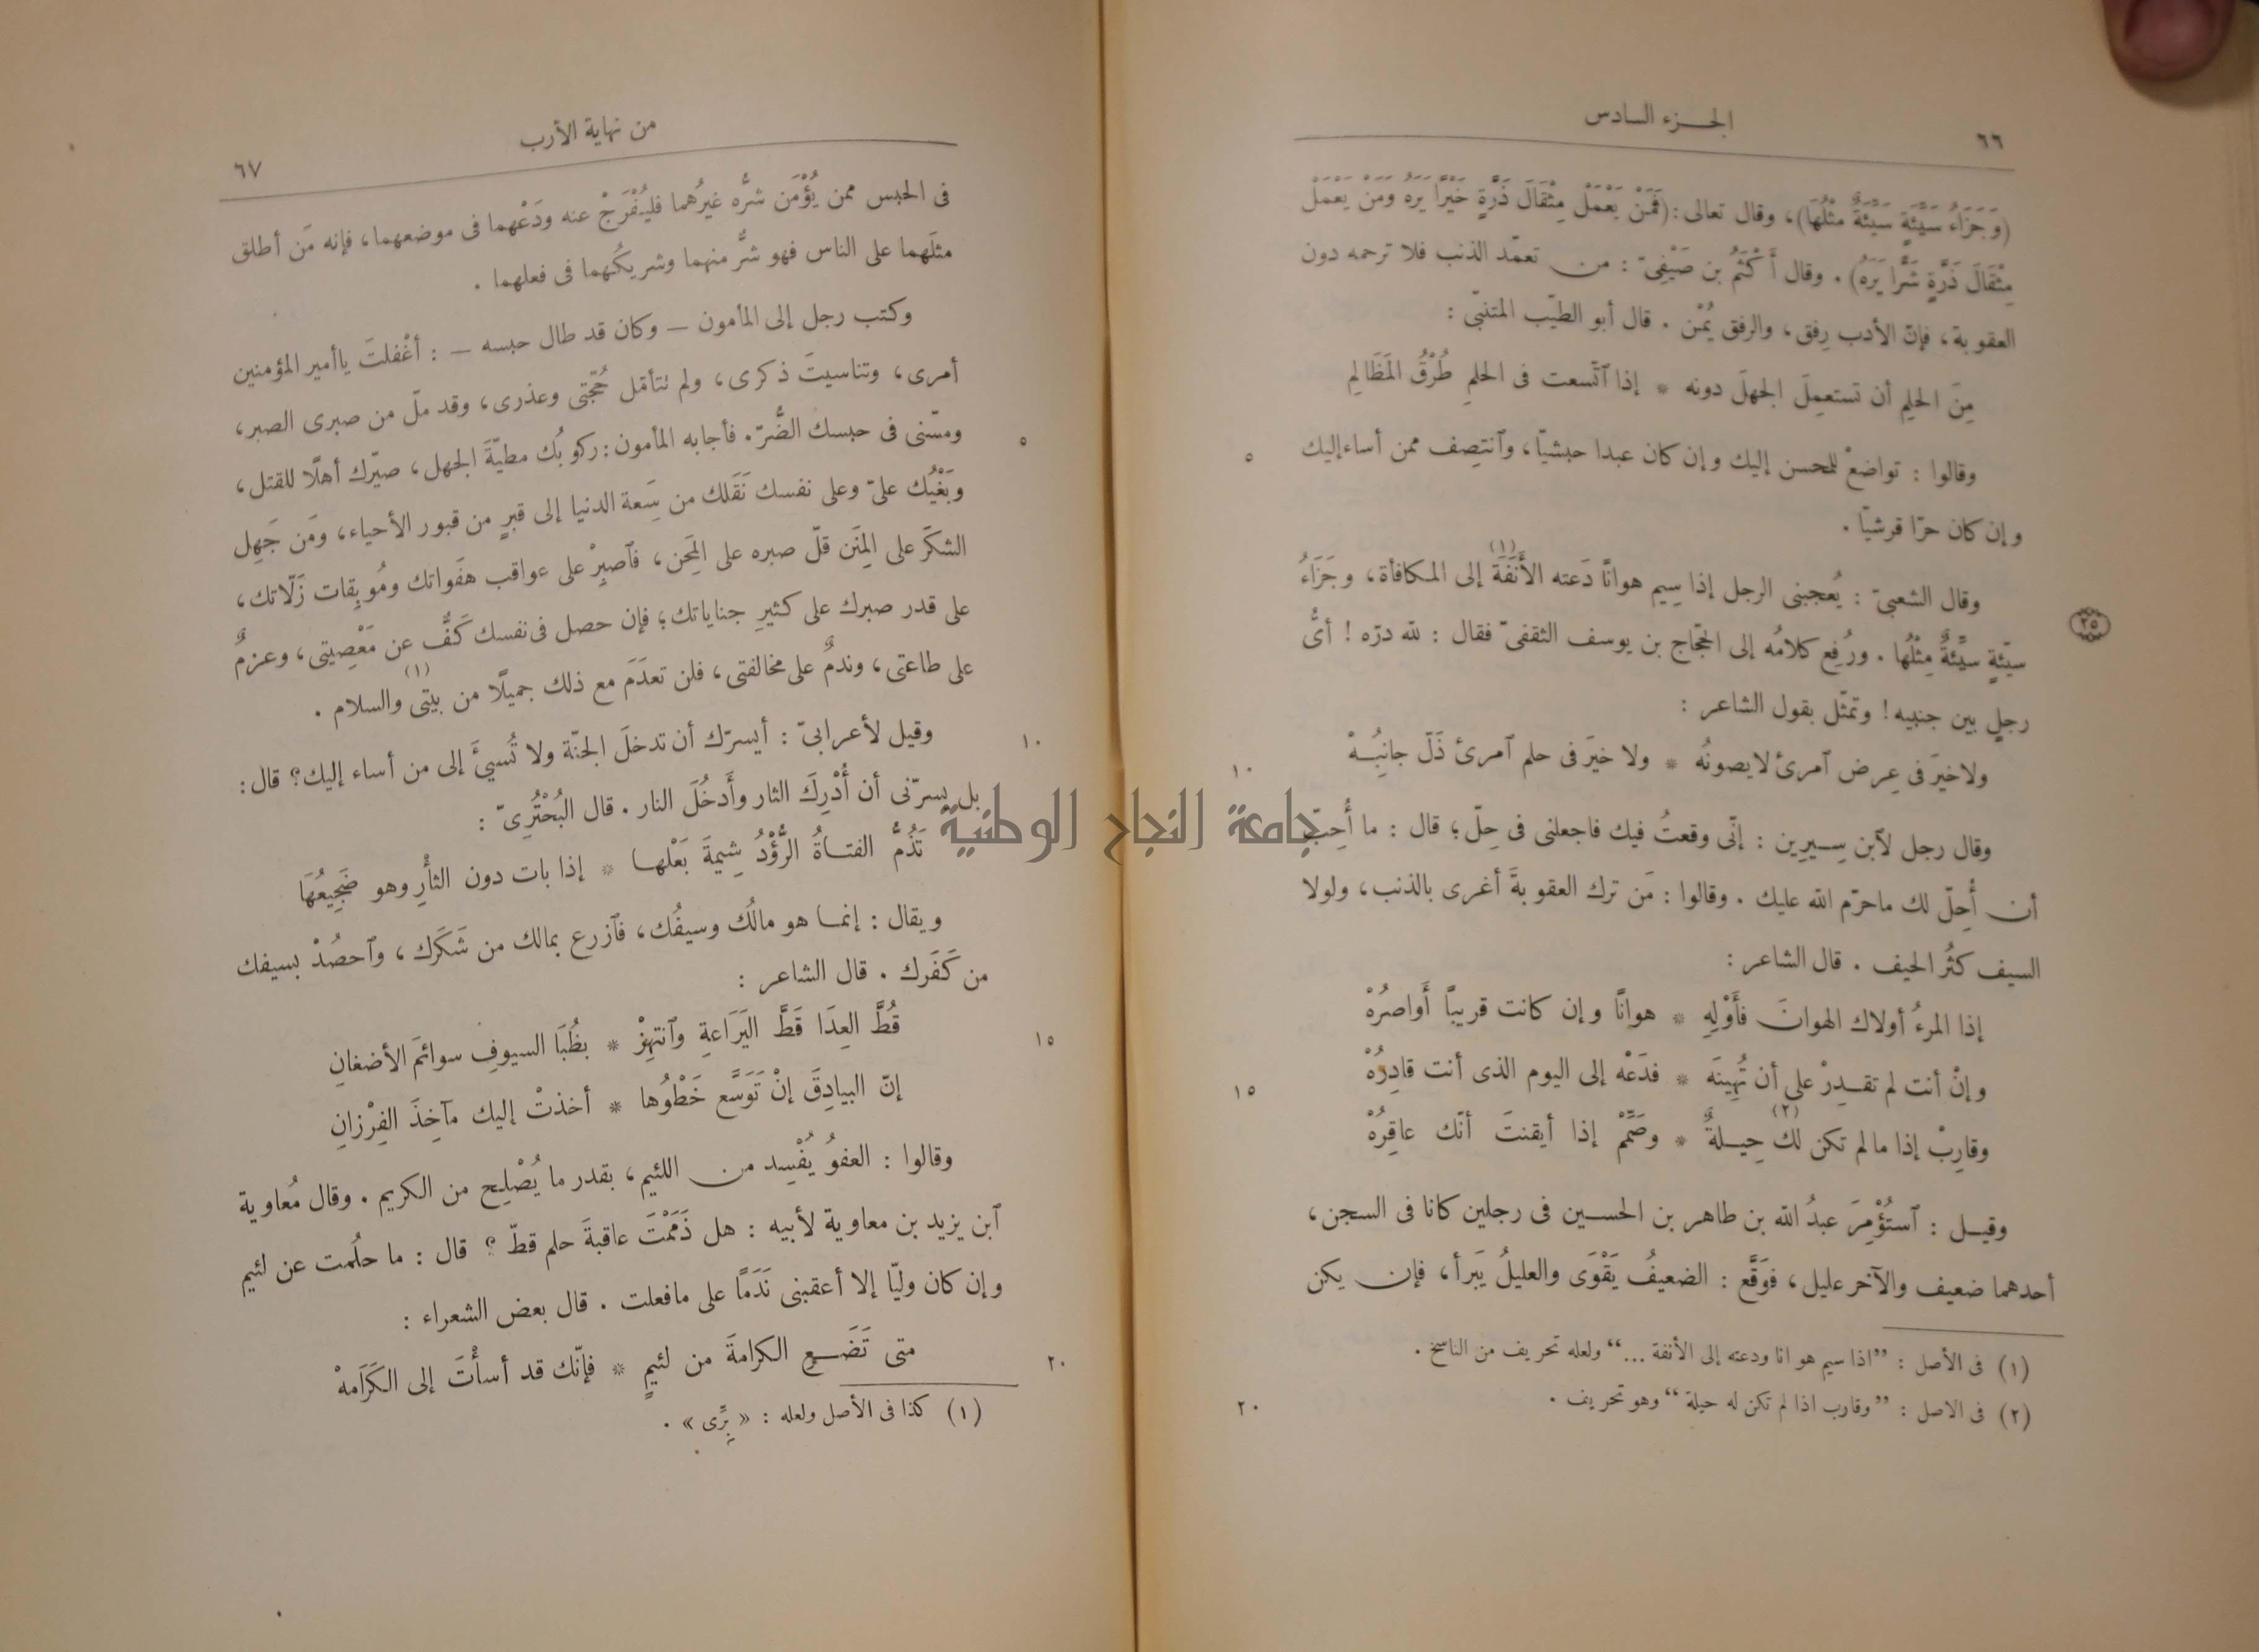 ٦٦
الجزء السادس
(وَجَزَاءُ سَيِّئَةٍ سَيِّئَةٌ مِثْلُهَا)، وقال تعالى: (فَمَنْ يَعْمَلْ مِثْقَالَ ذَرَّةٍ خَيْرًا يَرَهُ وَمَنْ يَعْمَلْ
مِثْقَالَ ذَرَّةٍ شَرًّا يَرَهُ). وقال أَكْثَمُ بن صَيْفىّ: من تعمّد الذنب فلا ترحمه دون
العقوبة، فإنّ الأدب رِفق، والرفق يُمْن. قال أبو الطيّب المتنبّى:
مِنَ الحلِم أن تستعمِلَ الجهلَ دونه * إذا ٱتّسعت فى الحلمِ طُرْقُ المَظَالِمِ
٥
وقالوا: تواضعْ للمحسن إليك وإن كان عبدا حبشيّا، وٱنتصِف ممن أساء إليك
وإن كان حرّا قرشيّا.
وقال الشعبىّ: يُعجبنى الرجل إذا سِيم هوانًا دَعته الأَنَفَة (١) إلى المكافأة، وجَزَاءُ
سيّئةٍ سيِّئةٌ مِثْلُها. ورُفِع كلامُه إلى الحجّاج بن يوسف الثقفىّ فقال: لله درّه! أىُّ
(٢٥)
رجلٍ بين جنبيه! وتمثّل بقول الشاعر:
١٠
ولا خيرَ فى عِرض ٱمرئ لا يصونُه * ولا خيرَ فى حلم ٱمرئ ذَلّ جانِبُهْ
وقال رجل لٱبن سِيرِين: إنّى وقعتُ فيك فاجعلنى فى حِلّ؛ قال: ما أُحِبّ
أن أُحِلّ لك ما حرّم الله عليك. وقالوا: مَن ترك العقوبةَ أغرى بالذنب، ولولا
السيف كثُر الحيف. قال الشاعر:
إذا المرءُ أولاك الهوانَ فأَوْلِهِ * هوانًا وإن كانت قريبًا أَواصرُهْ
١٥
وإنْ أنت لم تقدِرْ على أن تُهِينَه * فدَعْه إلى اليوم الذى أنت قادِرُهْ
وقارِبْ إذا ما لم تكن لك (٢) حِيلةٌ * وصَمِّمْ إذا أيقنتَ أنّك عاقِرُهْ
وقيل: ٱستُؤْمِرَ عبدُ الله بن طاهر بن الحسين فى رجلين كانا فى السجن،
أحدهما ضعيف والآخر عليل، فوَقَّع: الضعيفُ يَقْوَى والعليلُ يَبرأ، فإن يكن
(١) فى الأصل: "اذا سيم هوانا ودعته إلى الأنفة ..." ولعله تحريف من الناسخ.
٢٠
(٢) فى الاصل: "وقارب اذا لم تكن له حيلة" وهو تحريف.
من نهاية الأرب
٦٧
فى الحبس ممن يُؤْمَن شرُّه غيرُهما فليُفْرَجْ عنه ودَعْهما فى موضعهما، فإنه مَن أطلق
مثلَهما على الناس فهو شرٌّ منهما وشريكُهما فى فعلهما.
وكتب رجل إلى المأمون – وكان قد طال حبسه –: أغْفلتَ يا أمير المؤمنين
أمرى، وتناسيتَ ذكرى، ولم تتأمّل حُجّتى وعذرى، وقد ملّ من صبرى الصبر،
٥
ومسّنى فى حبسك الضُّرّ. فأجابه المأمون: ركوبُك مطيّةَ الجهل، صيّرك أهلًا للقتل،
وبَغْيُك علىّ وعلى نفسك نَقَلك من سَعة الدنيا إلى قبرٍ من قبور الأحياء، ومَن جَهِل
الشكرَ على المِنَن قلّ صبره على المِحَن، فٱصبِرْ على عواقب هفَواتك ومُوبِقات زَلّاتك،
على قدر صبرك على كثيرِ جناياتك؛ فإن حصل فى نفسك كَفٌّ عن مَعْصِيتى، وعزمٌ
على طاعتى، وندمٌ على مخالفتى، فلن تعدَمَ مع ذلك جميلًا من بيتى (١) والسلام.
١٠
وقيل لأعرابىّ: أيسرّك أن تدخلَ الجنّة ولا تُسئَ إلى من أساء إليك؟ قال:
بل يسرّنى أن أُدْرِكَ الثار وأَدخُلَ النار. قال البُحْتُرِىّ:
تَذُمُّ الفتاةُ الرُّؤْدُ شِيمةَ بَعْلها * إذا بات دون الثأْرِ وهو ضَجِيعُهَا
ويقال: إنما هو مالُك وسيفُك، فٱزرع بمالك من شَكَرك، وٱحصُدْ بسيفك
من كَفَرك. قال الشاعر:
١٥
قُطَّ العِدَا قَطَّ اليَرَاعةِ وٱنتهِزْ * بظُبَا السيوفِ سوائمَ الأضغانِ
إنّ البيادِقَ إنْ تَوَسَّع خَطْوُها * أخذتْ إليك مآخِذَ الفِرْزانِ
وقالوا: العفوُ يُفْسِد من اللئيم، بقدر ما يُصْلِح من الكريم. وقال مُعاوية
ٱبن يزيد بن معاوية لأبيه: هل ذَمَمْتَ عاقبةَ حلم قطّ؟ قال: ما حلُمت عن لئيم
وإن كان وليّا إلا أعقبنى نَدَمًا على ما فعلت. قال بعض الشعراء:
٢٠
متى تَضَعِ الكرامةَ من لئيمٍ * فإنّك قد أسأْتَ إلى الكَرَامهْ
(١) كذا فى الأصل ولعله: «بِرِّى».
جامعة النجاح الوطنية